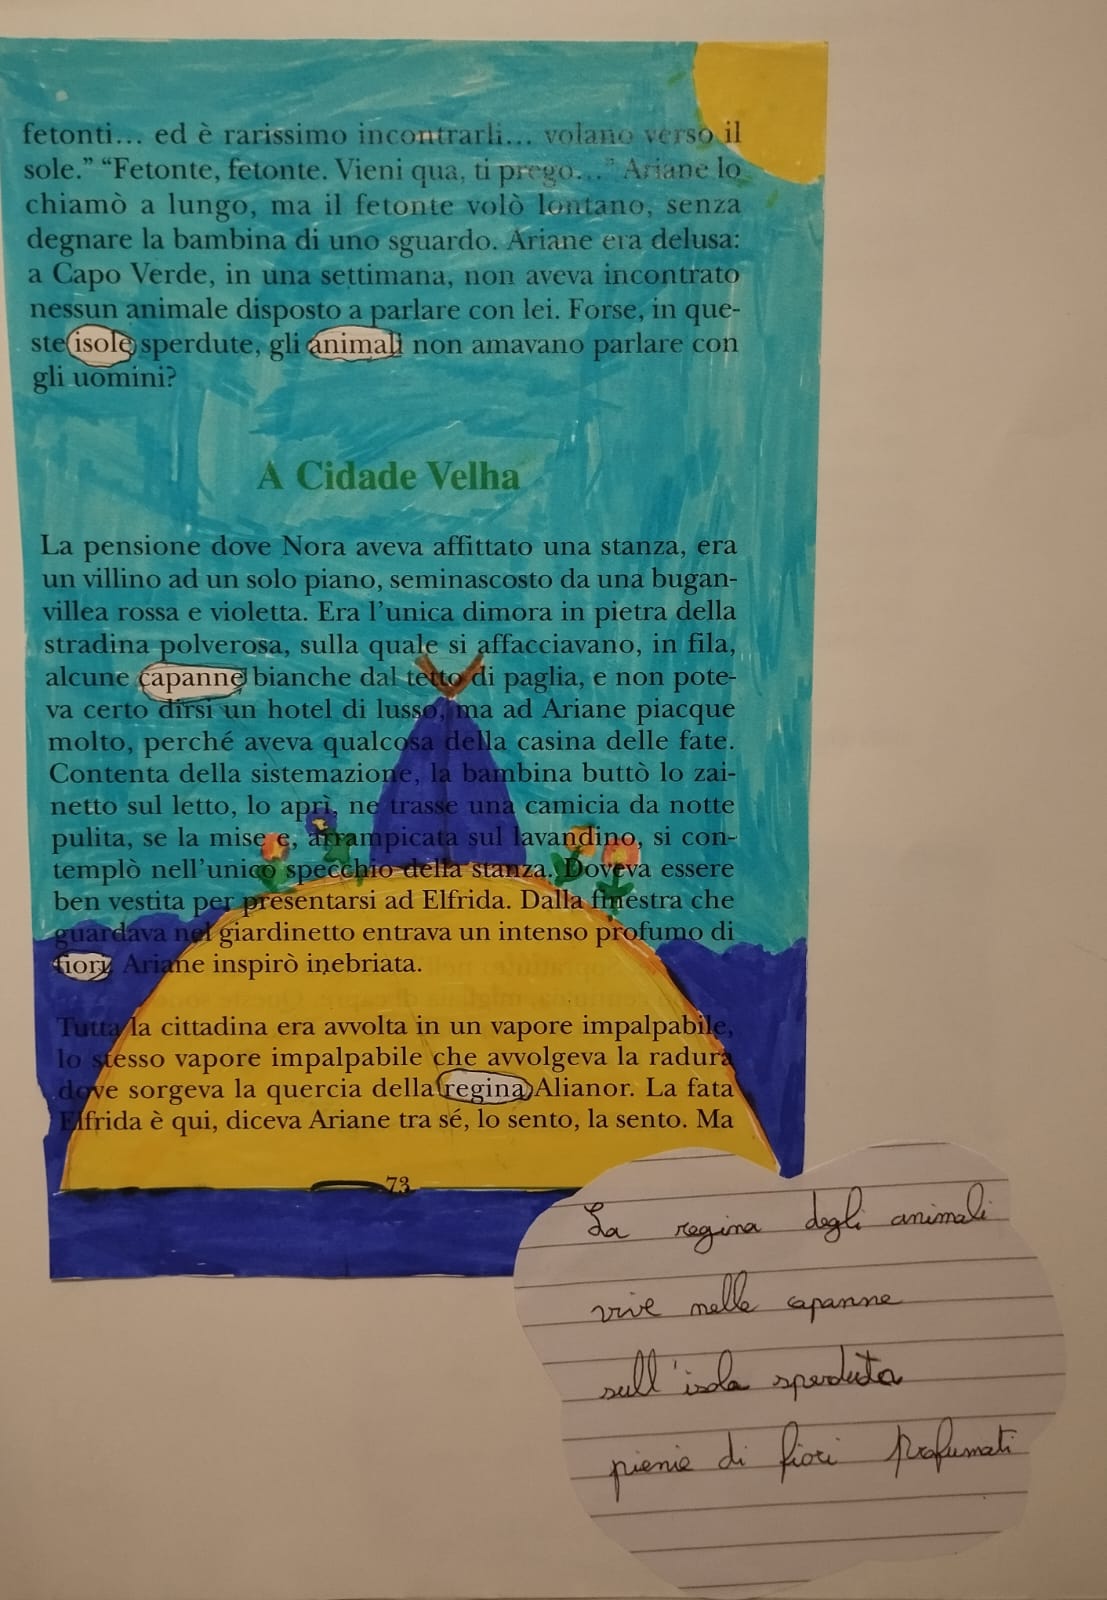 fetonti... ed è rarissimo incontrarli... volano verso il
sole.” “Fetonte, fetonte. Vieni qua, ti prego...” Ariane lo
chiamò a lungo, ma il fetonte volò lontano, senza
degnare la bambina di uno sguardo. Ariane era delusa:
a Capo Verde, in una settimana, non aveva incontrato
nessun animale disposto a parlare con lei. Forse, in que-
ste isole sperdute, gli animali non amavano parlare con
gli uomini?
A Cidade Velha
La pensione dove Nora aveva affittato una stanza, era
un villino ad un solo piano, seminascosto da una bugan-
villea rossa e violetta. Era l’unica dimora in pietra della
stradina polverosa, sulla quale si affacciavano, in fila,
alcune capanne bianche dal tetto di paglia, e non pote-
va certo dirsi un hotel di lusso, ma ad Ariane piacque
molto, perché aveva qualcosa della casina delle fate.
Contenta della sistemazione, la bambina buttò lo zai-
netto sul letto, lo aprì, ne trasse una camicia da notte
pulita, se la mise e, arrampicata sul lavandino, si con-
templò nell’unico specchio della stanza. Doveva essere
ben vestita per presentarsi ad Elfrida. Dalla finestra che
guardava nel giardinetto entrava un intenso profumo di
fiori. Ariane inspirò inebriata.
Tutta la cittadina era avvolta in un vapore impalpabile,
lo stesso vapore impalpabile che avvolgeva la radura
dove sorgeva la quercia della regina Alianor. La fata
Elfrida è qui, diceva Ariane tra sé, lo sento, la sento. Ma
73
La regina degli animali
vive nelle capanne
sull'isola sperduta
pienie di fiori profumati